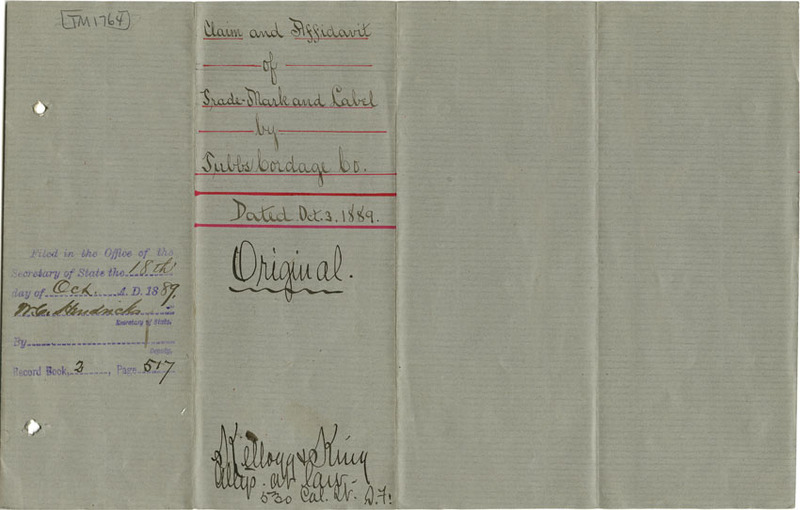 TM1764
Claim and Affidavit
of
Trade-Mark and Label
by
Tubbs Cordage Co.
Dated Oct. 3. 1889.
Original.
Filed in the Office of the
Secretary of State the 18th
day of Oct. A. D. 1889.
W. C. Hendricks
Secretary of State.
By
Deputy.
Record Book, 2, Page 517
Kellogg & King
Attys. at Law.
530 Cal. St. S.F.